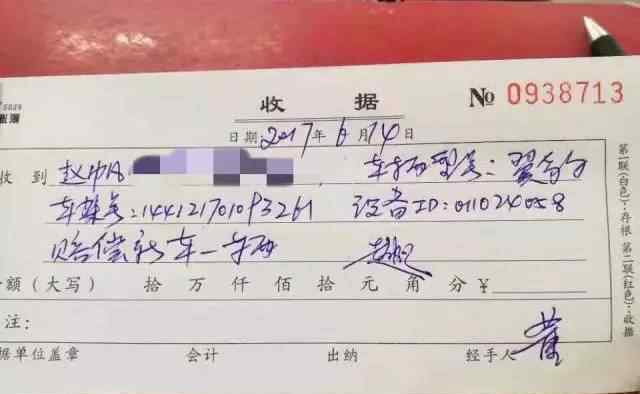 收 据 № 0938713
日期:2017年6月14日
收 到 赵 车辆型号:翼
车架号:144121701093261 设备ID:011024058
赔偿新车一辆
额(大写) 拾 万 仟 佰 拾 元 角 分 ¥
注:
据单位盖章 会计 出纳 经手人
第一联(白色):存根 第二联(红色):收据